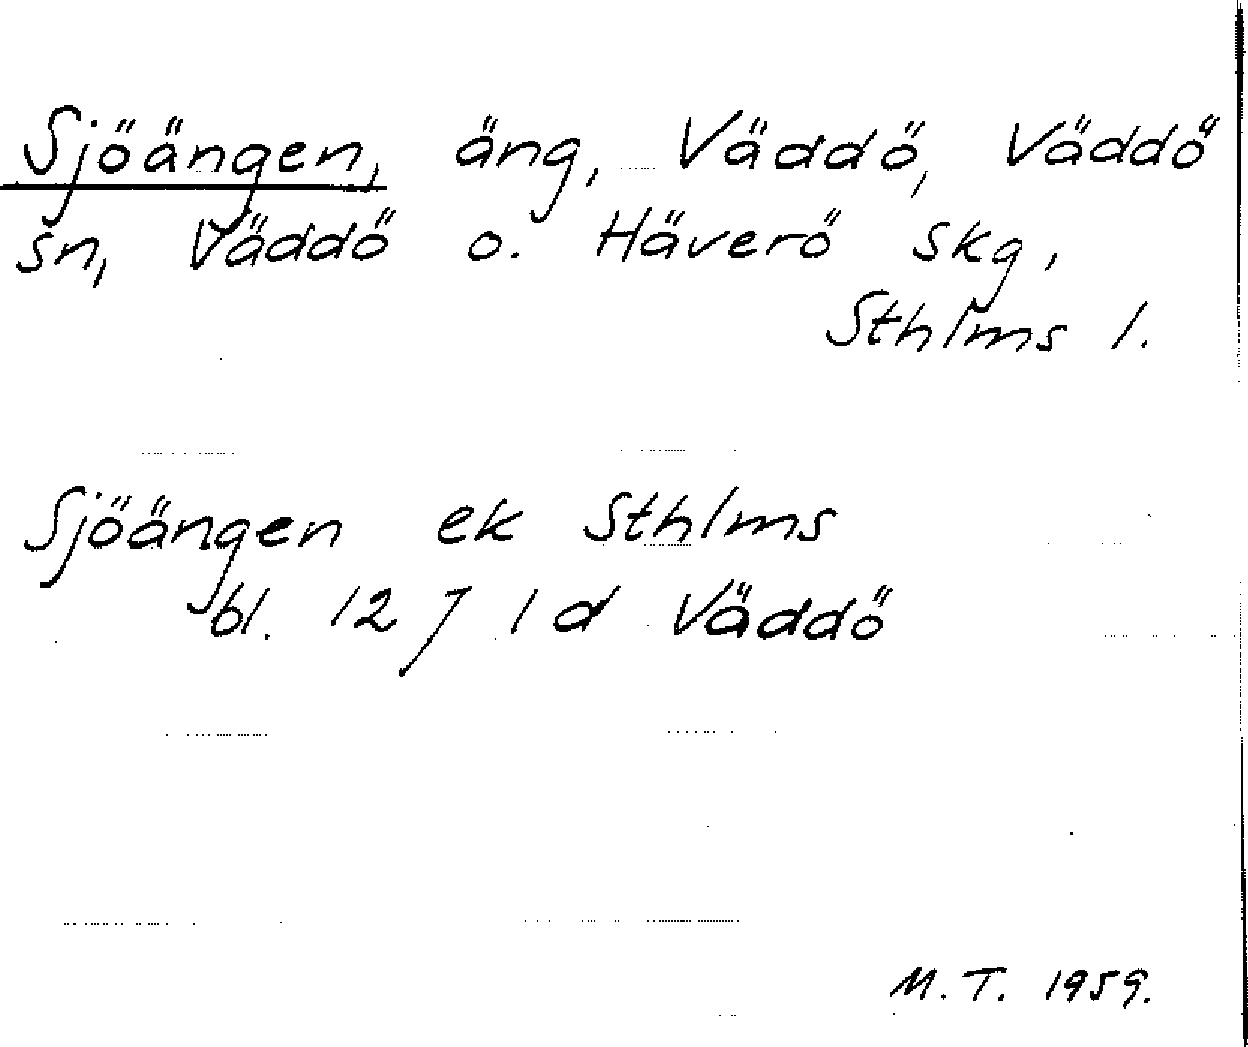 Sjöängen, äng, Väddö, Väddö
sn, Väddö o. Häverö skg,
Sthlms l.
Sjöängen ek Sthlms
bl. 12 J 1 d Väddö
M. T. 1959.